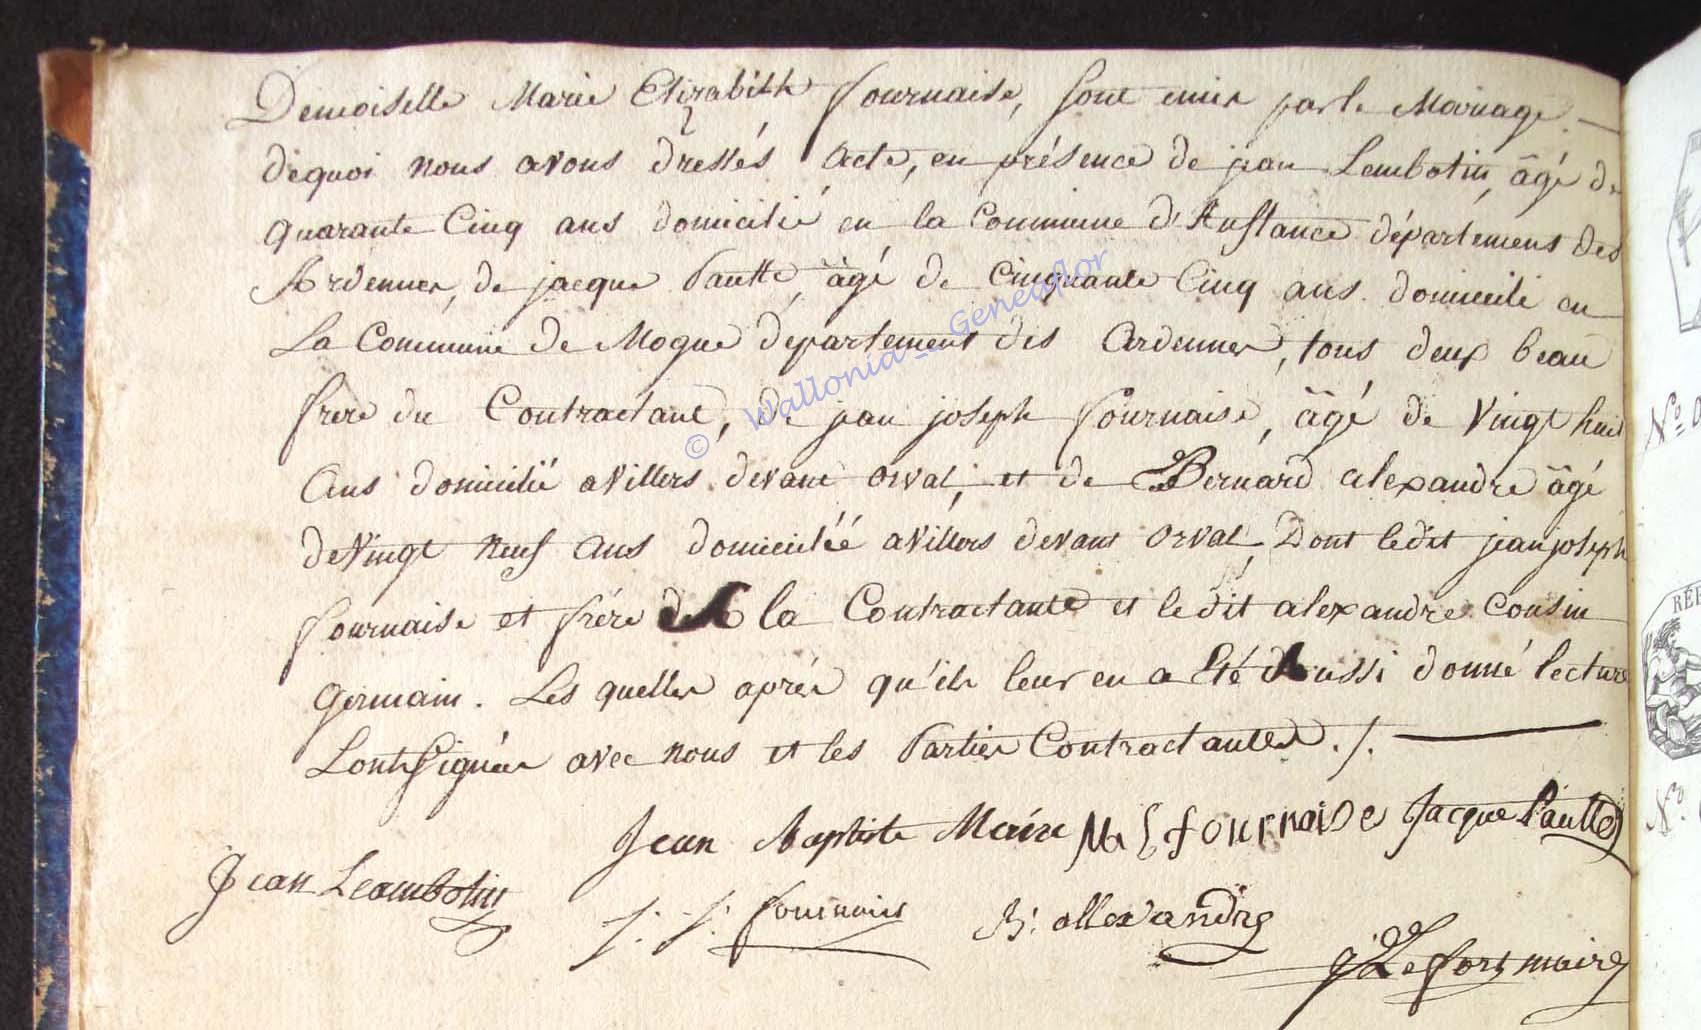 Demoiselle Marie Elizabeth fournaise, sont unis par le Mariage. —
dequoi nous avons dressés Acte, en présence de jean Lembotin, âgé de
quarante Cinq ans domicilié en la Commune d'Auflance département des
Ardennes, de jacque Pautte, âgé de Cinquante Cinq ans domicilié en
La Commune de Mogue département des Ardennes, tous deux beau
frere du Contractant, de jean joseph fournaise, âgé de Vingt huit
Ans domicilié a Villers devant orval, et de Bernard alexandre âgé
de Vingt neuf Ans domiciliéé a Villers devant orval, Dont ledit jean joseph
fournaise et frére de la Contractante et ledit alexandre Cousin
Germain. Les quelles aprés qu'ils leur en a Eté Aussi donné lecture
L'ont signées avec nous et les Parties Contractantes ./. —
Jean Baptiste Maire M E fournaise Jacque Pautte
Jean Leambotin
J. J. fournais B. allexandre
Lefort maire
© Wallonia_Geneaflor
N° 0
RÉP
N°